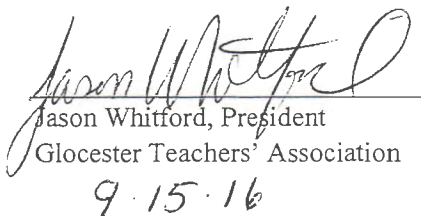 Jason Whitford
Jason Whitford, President
Glocester Teachers' Association
9.15.16